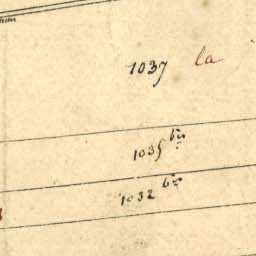 1037 la
1035 bis
1032 bis